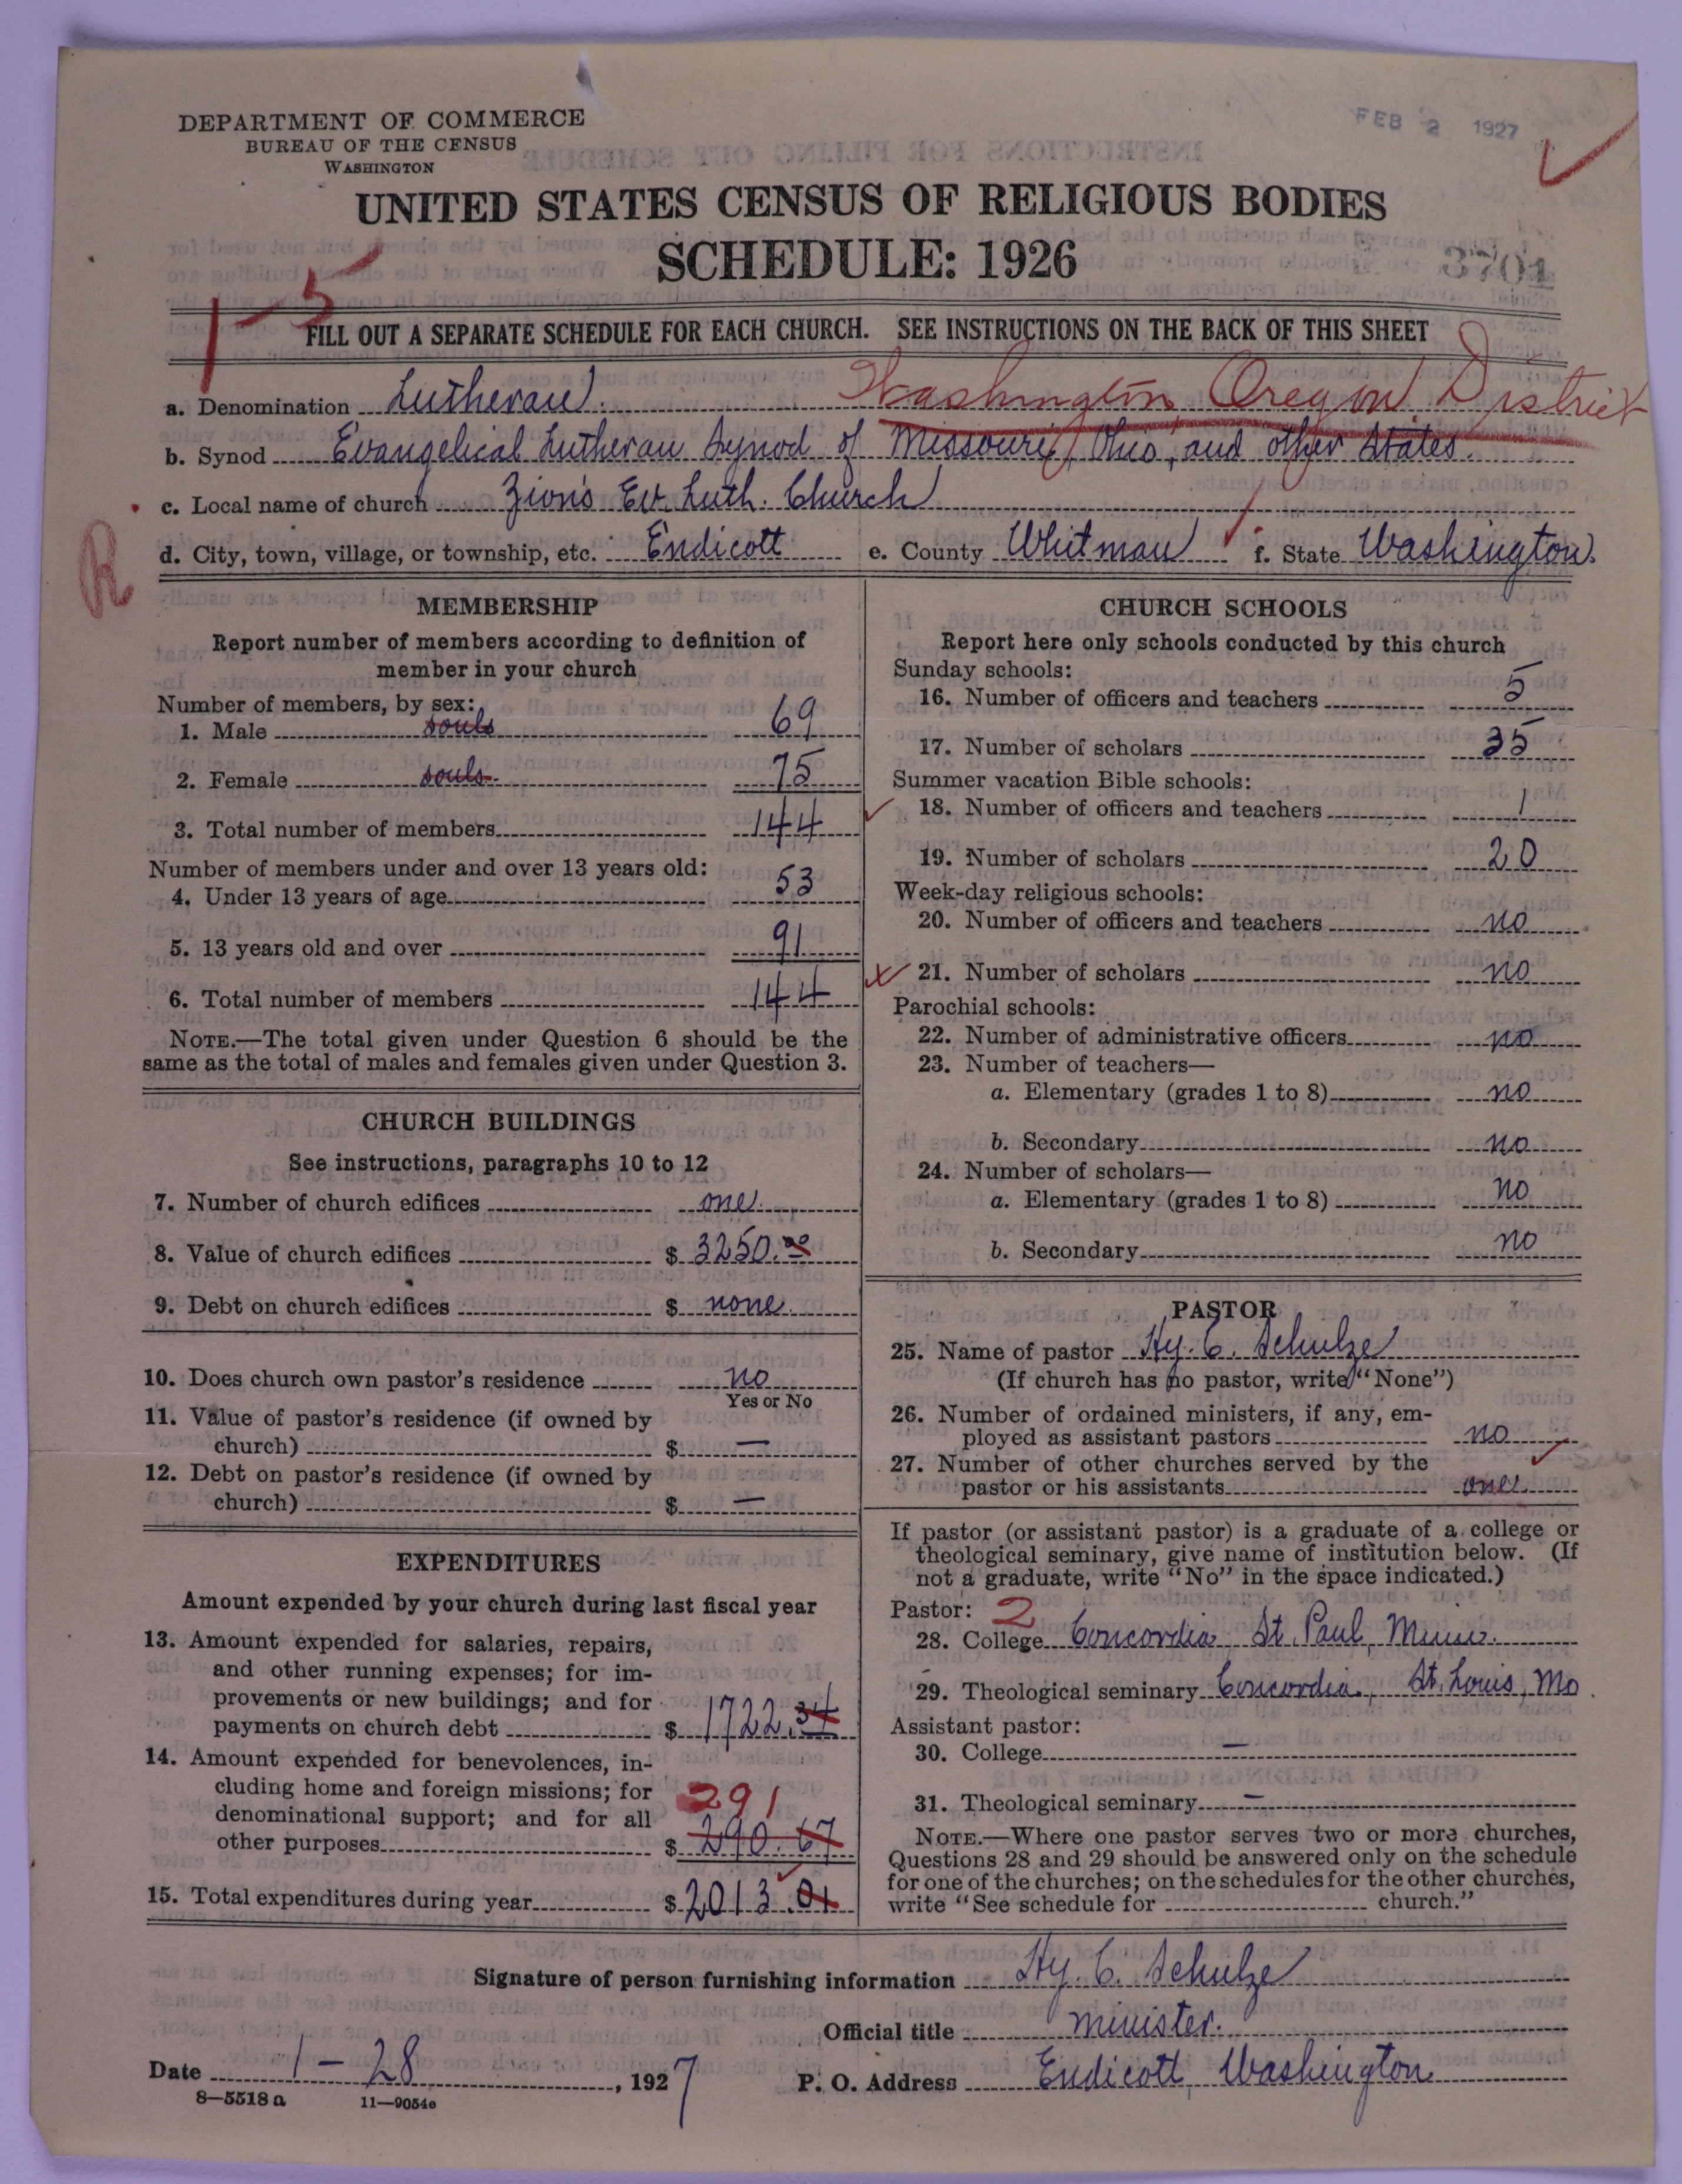 DEPARTMENT OF COMMERCE
BUREAU OF THE CENSUS
WASHINGTON
FEB 2 1927
UNITED STATES CENSUS OF RELIGIOUS BODIES
SCHEDULE: 1926
3701
1-5
FILL OUT A SEPARATE SCHEDULE FOR EACH CHURCH. SEE INSTRUCTIONS ON THE BACK OF THIS SHEET
Washington Oregon District
a. Denomination Lutheran.
b. Synod Evangelical Lutheran Synod of Missouri, Ohio, and other States.
c. Local name of church Zion's Ev. Luth. Church
R
d. City, town, village, or township, etc. Endicott e. County Whitman f. State Washington.
MEMBERSHIP
Report number of members according to definition of
member in your church
Number of members, by sex:
1. Male souls 69
2. Female souls 75
3. Total number of members 144
Number of members under and over 13 years old:
4. Under 13 years of age 53
5. 13 years old and over 91
6. Total number of members 144
NOTE.—The total given under Question 6 should be the
same as the total of males and females given under Question 3.
CHURCH BUILDINGS
See instructions, paragraphs 10 to 12
7. Number of church edifices one
8. Value of church edifices $ 3250.00
9. Debt on church edifices $ none
10. Does church own pastor's residence no
Yes or No
11. Value of pastor's residence (if owned by
church) $ —
12. Debt on pastor's residence (if owned by
church) $ —
EXPENDITURES
Amount expended by your church during last fiscal year
13. Amount expended for salaries, repairs,
and other running expenses; for im-
provements or new buildings; and for
payments on church debt $ 1722.34
14. Amount expended for benevolences, in-
cluding home and foreign missions; for
291
denominational support; and for all
other purposes $ 290.67
15. Total expenditures during year $ 2013.01
CHURCH SCHOOLS
Report here only schools conducted by this church
Sunday schools:
16. Number of officers and teachers 5
17. Number of scholars 35
Summer vacation Bible schools:
18. Number of officers and teachers 1
19. Number of scholars 20
Week-day religious schools:
20. Number of officers and teachers no
21. Number of scholars no
Parochial schools:
22. Number of administrative officers no
23. Number of teachers—
a. Elementary (grades 1 to 8) no
b. Secondary no
24. Number of scholars—
a. Elementary (grades 1 to 8) no
b. Secondary no
PASTOR
25. Name of pastor Hy. C. Schulze
(If church has no pastor, write "None")
26. Number of ordained ministers, if any, em-
ployed as assistant pastors no
27. Number of other churches served by the
pastor or his assistants one
If pastor (or assistant pastor) is a graduate of a college or
theological seminary, give name of institution below. (If
not a graduate, write "No" in the space indicated.)
Pastor: 2
28. College Concordia St. Paul, Minn.
29. Theological seminary Concordia, St. Louis, Mo.
Assistant pastor:
30. College —
31. Theological seminary —
NOTE.—Where one pastor serves two or more churches,
Questions 28 and 29 should be answered only on the schedule
for one of the churches; on the schedules for the other churches,
write "See schedule for church."
Signature of person furnishing information Hy. C. Schulze
Official title minister.
Date 1-28, 1927 P. O. Address Endicott, Washington
8—5518 a 11—9054e